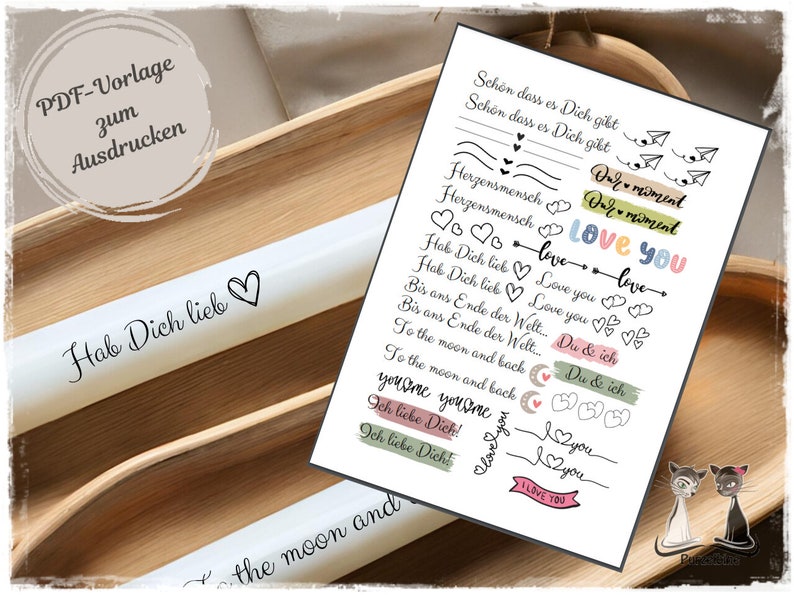 PDF-Vorlage
zum
Ausdrucken
Hab Dich lieb
To the moon and
Schön dass es Dich gibt
Schön dass es Dich gibt
Our moment
Our moment
Herzensmensch
Herzensmensch
LOVE YOU
love
love
Hab Dich lieb
Hab Dich lieb
Love you
Love you
Bis ans Ende der Welt...
Bis ans Ende der Welt...
Du & ich
Du & ich
To the moon and back
To the moon and back
you me
you me
Ich liebe Dich!
Ich liebe Dich!
love you
I you
I you
I LOVE YOU
Purzelbine